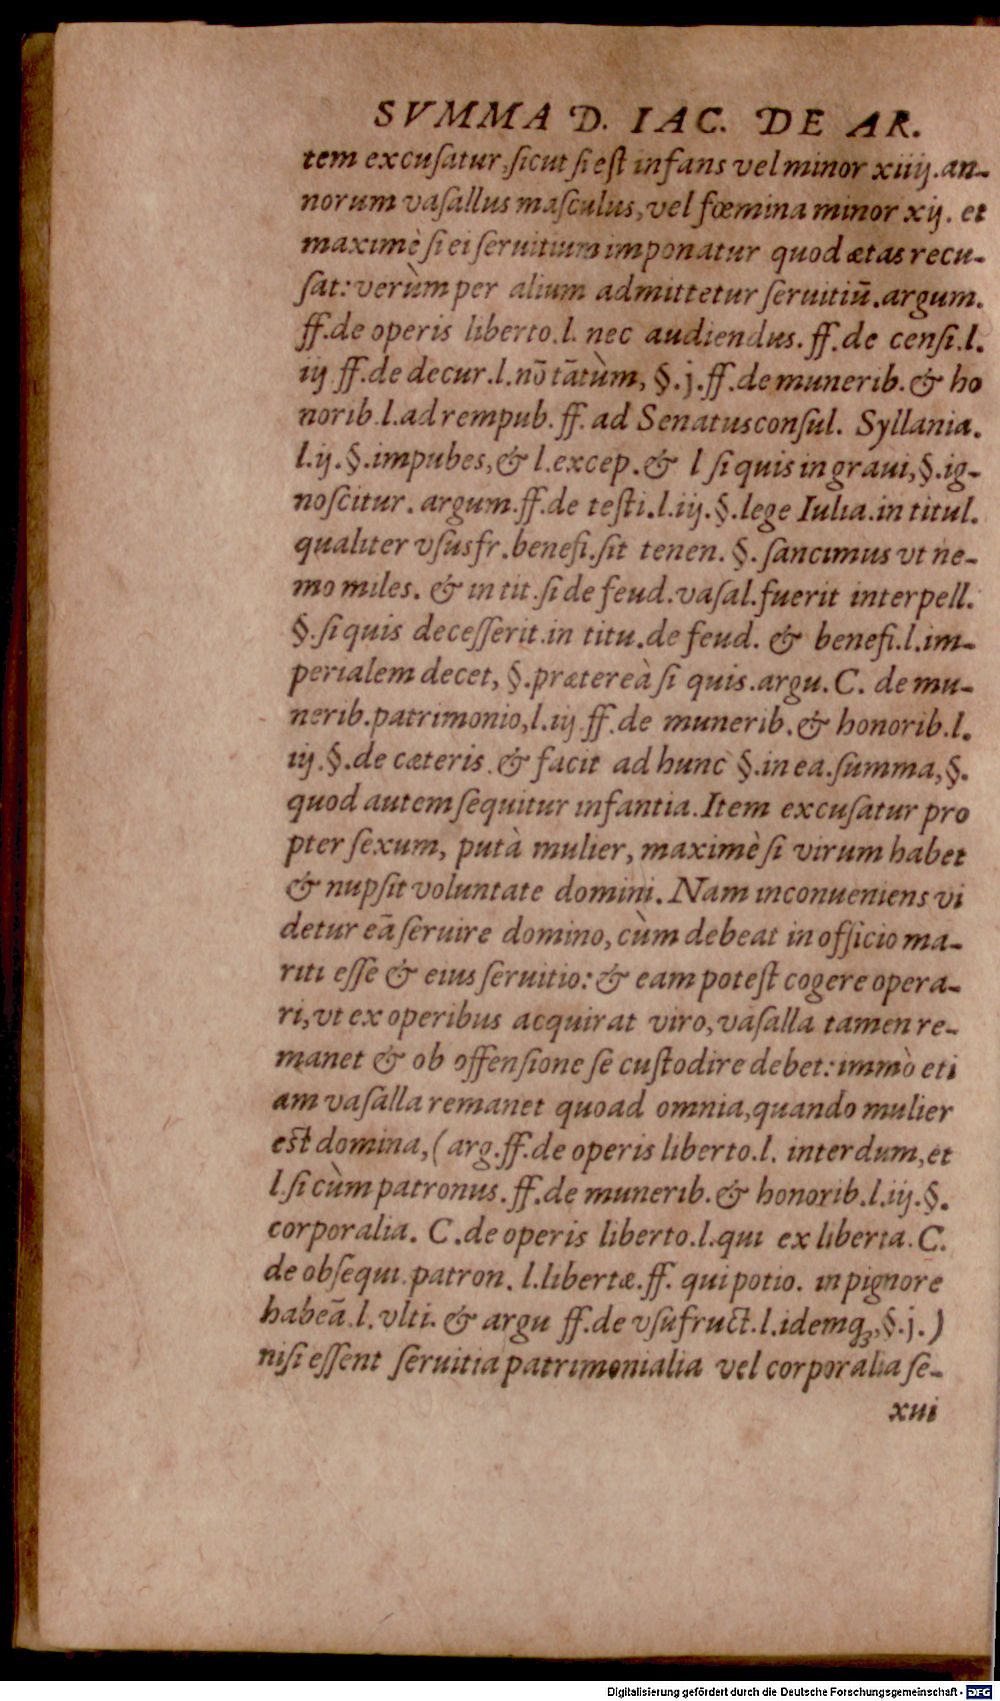 SVMMA D. IAC. DE AR.
tem excuſatur, ſicut ſi eſt infans vel minor xiiij. an-
norum vaſallus maſculus, vel fœmina minor xij. et
maximè ſi ei ſeruitium imponatur quod ætas recu-
ſat: verùm per alium admittetur ſeruitiū. argum.
ff. de operis liberto. l. nec audiendus. ff. de cenſi. l.
iij ff. de decur. l. nō tātùm, §. j. ff. de munerib. & ho
norib. l. ad rempub. ff. ad Senatusconſul. Syllania.
l. ij. §. impubes, & l. excep. & l ſi quis in graui, §. ig-
noſcitur. argum. ff. de teſti. l. iij. §. lege Iulia. in titul.
qualiter vſusfr. benefi. ſit tenen. §. ſancimus vt ne-
mo miles. & in tit. ſi de feud. vaſal. fuerit interpell.
§. ſi quis deceſſerit. in titu. de feud. & benefi. l. im-
perialem decet, §. prætereà ſi quis. argu. C. de mu-
nerib. patrimonio, l. iij. ff. de munerib. & honorib. l.
iij. §. de cæteris. & facit ad hunc §. in ea. ſumma, §.
quod autem ſequitur infantia. Item excuſatur pro
pter ſexum, putà mulier, maximè ſi virum habet
& nupſit voluntate domini. Nam inconueniens vi
detur eā ſeruire domino, cùm debeat in officio ma-
riti eſſe & eius ſeruitio: & eam poteſt cogere opera-
ri, vt ex operibus acquirat viro, vaſalla tamen re-
manet & ob offenſione ſe cuſtodire debet: immò eti
am vaſalla remanet quoad omnia, quando mulier
eſt domina, ( arg. ff. de operis liberto. l. interdum, et
l. ſi cùm patronus. ff. de munerib. & honorib. l. iij. §.
corporalia. C. de operis liberto. l. qui ex liberta. C.
de obſequi. patron. l. libertæ. ff. qui potio. in pignore
habeā. l. vlti. & argu ff. de vſufruct. l. idemqꝫ, §. j. )
niſi eſſent ſeruitia patrimonialia vel corporalia ſe-
xui
Digitalisierung gefördert durch die Deutsche Forschungsgemeinschaft - DFG